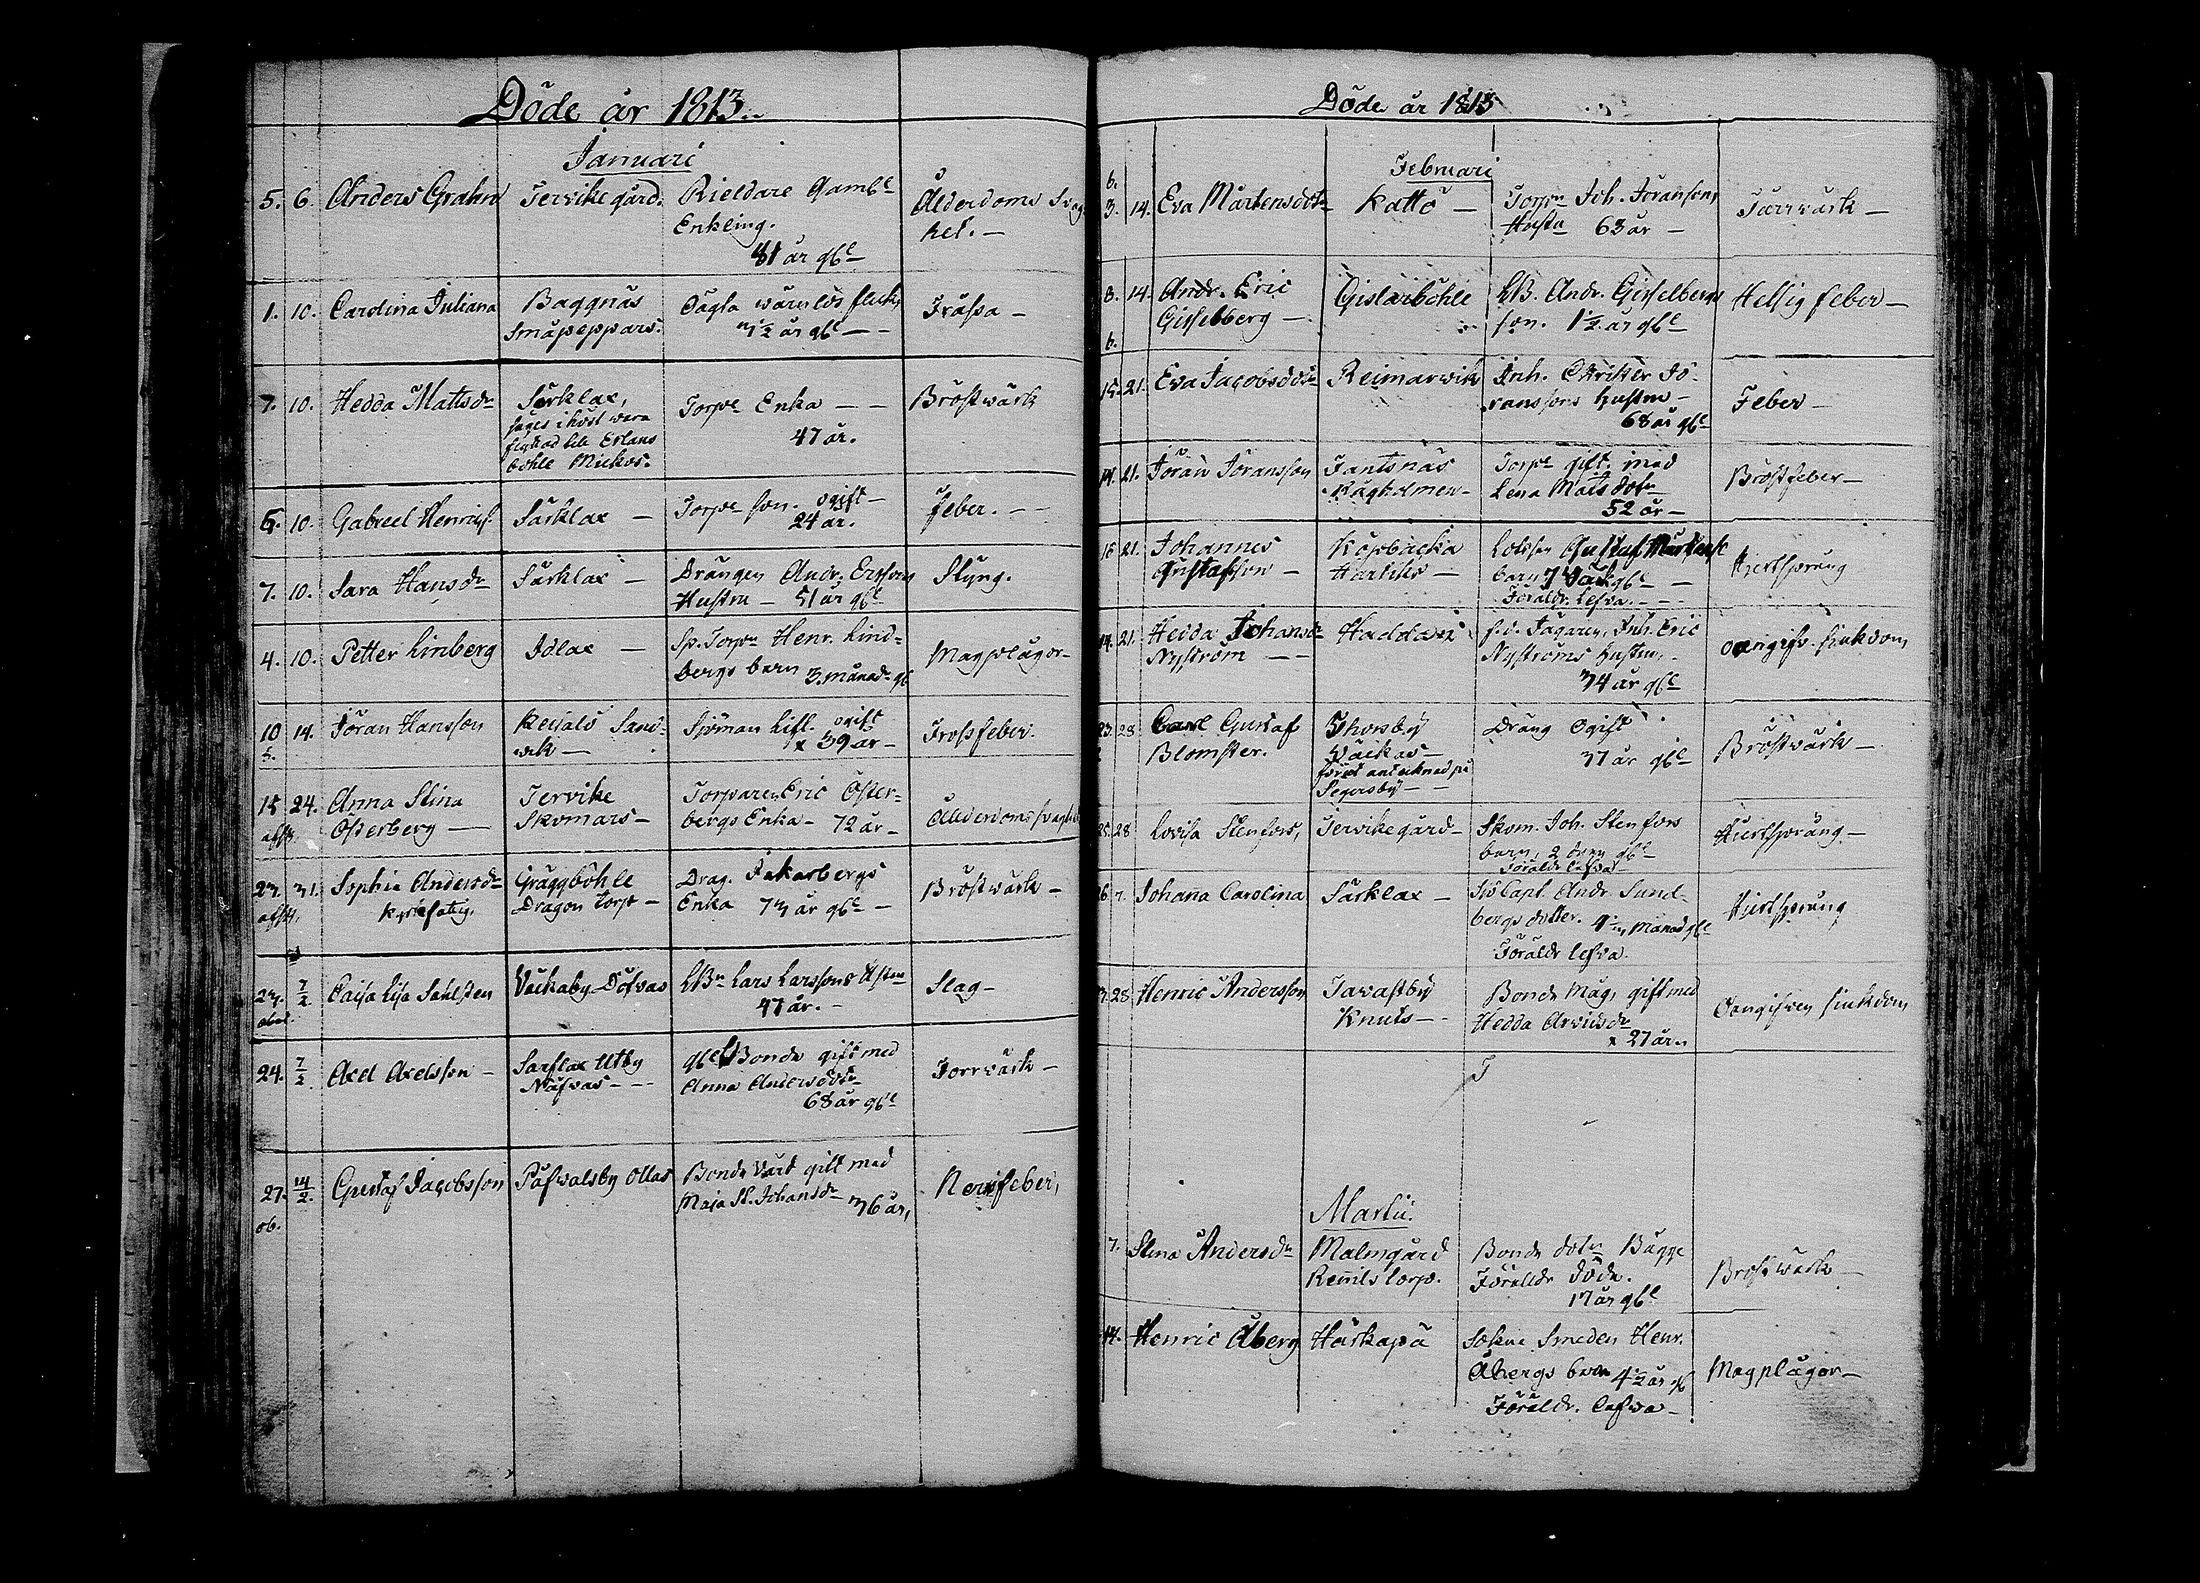 Döde år 1813.
Januari
5. 6. Anders Grahn Tervike gård. Rieldare Gambl
Enkling.
81 år gbl
Ålderdoms Svag
het. –
1. 10. Carolina Juliana Baggnäs
Småpeppars.
wärnlös flicka
½ år gbl – –
Tråssa –
7. 10. Hedda Mattsdr Särklax,
sages i höst wara
flyttad till Erlans
böhle Mickos.
Torpe Enka – –
47 år.
Bröstwärk
6. 10. Gabriel Henrics. Särklax – Torpe son. ogift –
24 år.
feber. – –
7. 10. Sara Hansdr Särklax – Drängen Andr. Erssons
Hustru – 51 år gbl
Styng.
4. 10. Petter Linberg Idlax – Sp. Torpn Henr. Lind=
bergs barn 3. månadr gl
Magplågor –
10 14. Jöran Hansson Kejsals Sand=
wik –
Sjöman Lifl. ogift
x 39 år –
Frossfeber.
15 24. Anna Stina
Österberg –
Tervike
Skomars –
Torparen Eric Öster=
bergs Enka – 72 år –
Ålderdoms svaghet
27. 31. Sophia Andersdr
Kyrkfatig.
Gräggböhle
Dragon Torp –
Drag. Jakarbergs
Enka 73 år gbl –
Bröstwärk –
27. 7/2 Caisa Lisa Sahlsten Väckaby Döfvas LBn Lars Larssons Hstru
47 år. –
Slag –
24. 7/2 Axel Axelsson – Sarflax Utby
Näfvas – – –
gbl Bonde gift med
Anna Andersdotr
68 år gbl
Torrwärk –
27. 14/2. Gustaf Jacobsson Påfvalsby Ollas Bonde Värd gift med
Maja St. Johansdr 36 år,
Nerffeber,
ob.
Döde år 1813
Februari
3. 14. Eva Mårtensdotr Kattö – Torpn Joh. Jöransons
Hustru 63 år –
Torrwärk –
8. 14. Andr. Eric
Gisselberg –
Gislarböhle LB. Andr. Gisselbergs
son. 1½ år gbl
Hetsig feber –
15. 21. Eva Jacobsdotr Reimarswik Inh. Christer Jö=
ranssons hustru –
68 år gbl
Feber –
14. 21. Jöran Jöransson Fantsnäs
Rågholmen –
Torpe gift med
Lena Matsdotr
52 år –
Bröstfeber –
15 21. Johannes
Gustafsson –
Köpbacka
Härtiks –
Gustaf Mårtenss
barn 7 gbl –
Föräldr. Lefva. – –
Hiertsprång
14. 21. Hedda Johansdr
Nyström – –
Haddari f.d. Jägaren, Inh. Eric
Nyströms hustru, –
74 år gbl
oangifv. siukdom,
23. 28 Carl Gustaf
Blomster.
Thorsby
Bäckas –
förut antecknad på
Segersby – –
Dräng Ogift
37 år gbl –
Bröstwärk –
25. 28 Lovisa Stenfors, Tervike gård – Skom. Joh. Stenfors
barn, 2 gbl –
Föräldr. Lefva
Hiertsprång –
6. 7. Johana Carolina Särklax – Sjö Capt. Andr Sund=
bergs dotter. månad gbl
Föräldr lefva.
Hiertsprång
28 Henric Andersson Tavastby
Knuts –
Bonde Måg, gift med
Hedda Arvidsdr
x 27 år.
Oangifven siukdom,
Martii.
7. Stina Andersdr Malmgård
Remils torp.
Bonde dotr Bagge
Föräldr döda.
17 år gbl
Bröstwärk –
14. Henric Åberg Härkapä Sokne Smeden Henr.
Åbergs barn 4½ år gl
Föräldr. Lefva –
Magplågor –